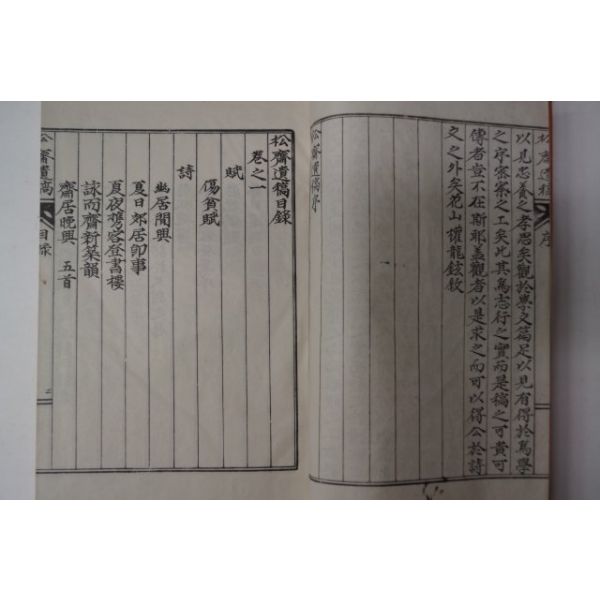 松齋遺稿 序
以見忘養之孝思矣觀於學文篇足以見有得於爲學
之序察察之工矣此其爲志行之實而是稿之可貴可
傳者豈不在斯耶盖觀者以是求之而可以得公於詩
文之外矣花山 權龍鉉敘
松齋遺稿序
松齋遺稿目錄
卷之一
賦
傷貧賦
詩
幽居閒興
夏日郊居卽事
夏夜携客登書樓
詠而齋新築韻
齋居晚興 五首
松齋遺稿 目錄 二